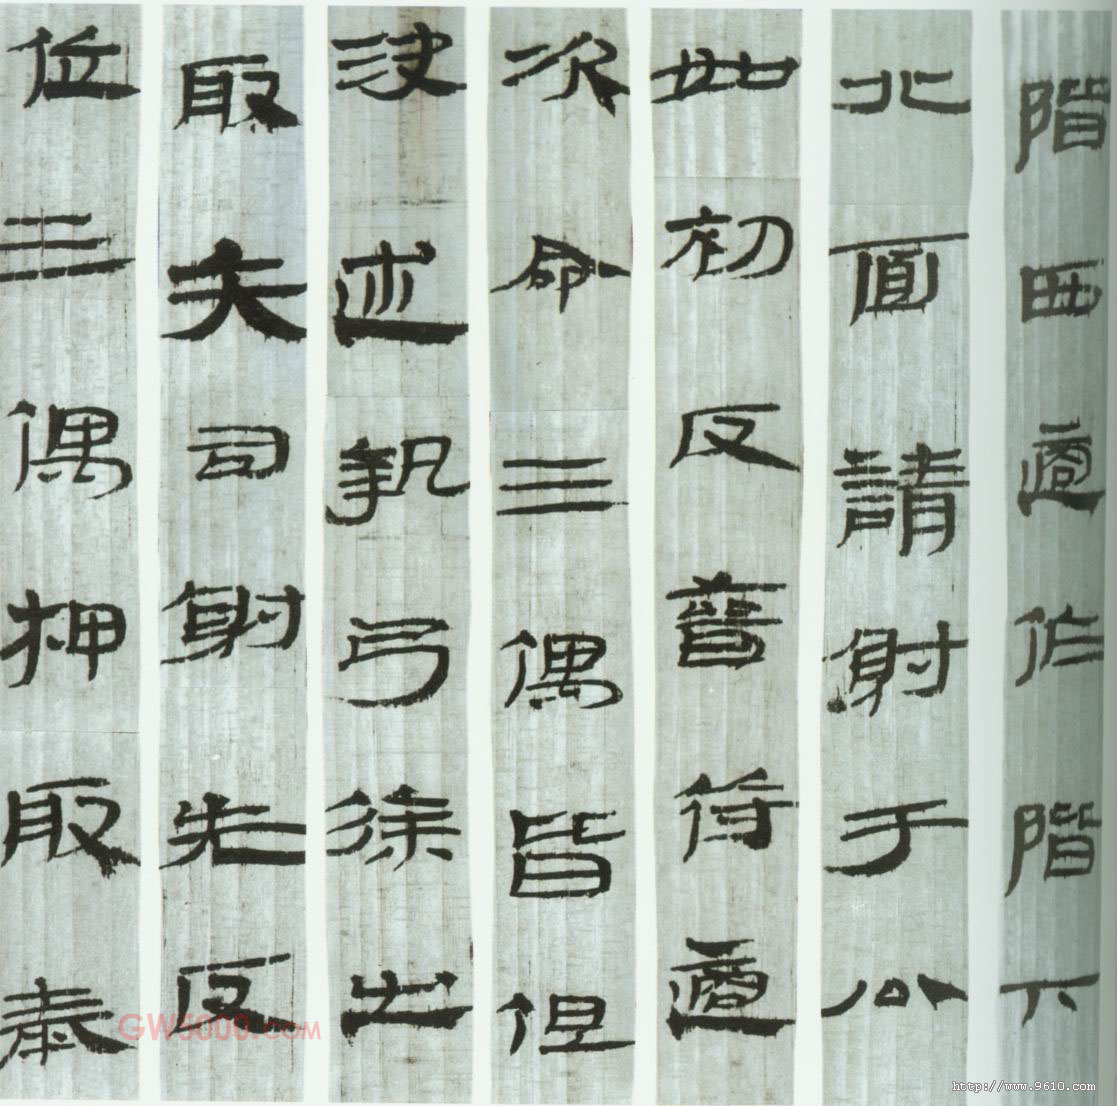 階西適作階下
北面請射于公
如初反晉符適
次命三偶皆但
決述執弓徐出
取矢司射先反
位三偶押取
GW5000.COM
http://www.9610.com